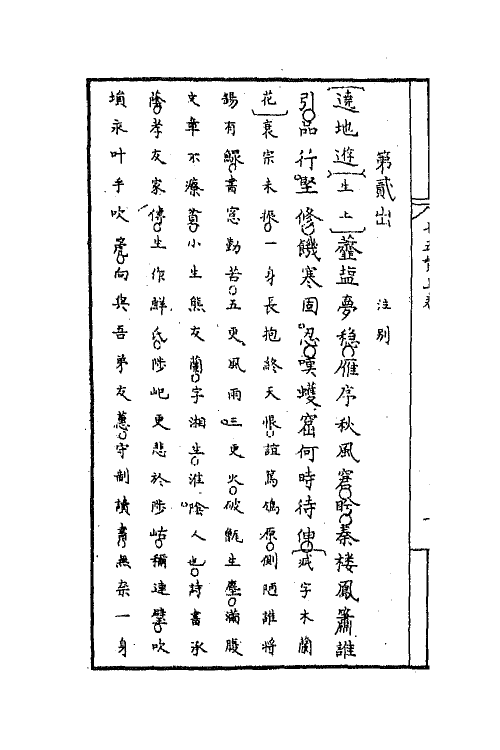 十五貫上卷 一
第貳出 泣別
〔遶地遊〕〔生上〕虀盐夢穩雁序秋風窘盻秦楼鳳簫誰
引品行堅修饑寒固忍嘆蠖窟何時待伸〔減字木蘭
花〕衰宗未振一身長抱終天恨誼篤鴒原側陋誰將
錫有鰥書窓勤苦五更風雨三更火破甑生塵滿腹
文章不療貧小生熊友蘭字湘生淮陰人也詩書承
蔭孝友家傳生作鮮民陟屺更悲於陟岵稱連璧吹
塤永叶乎吹箎向與吾弟友蕙守制讀書無奈一身